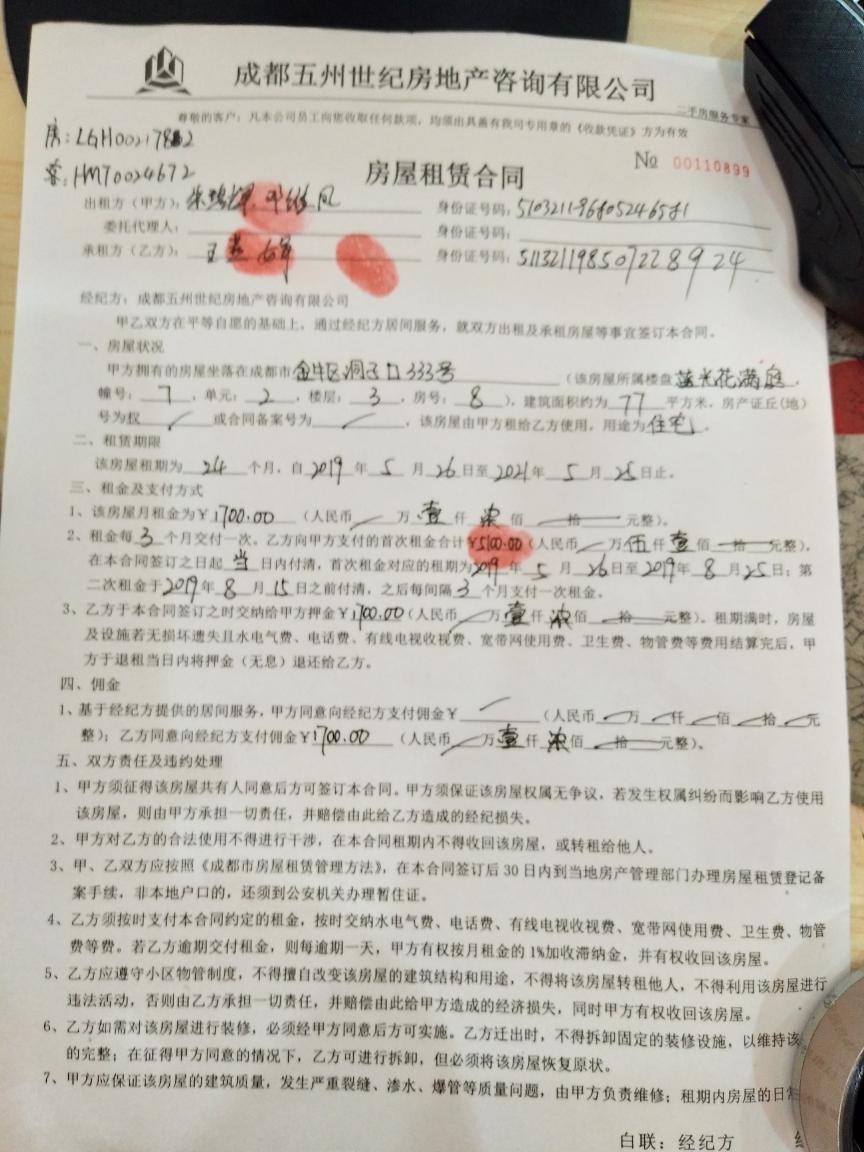 成都五州世纪房地产咨询有限公司
二手房服务专家
尊敬的客户：凡本公司员工向您收取任何款项，均须出具盖有我司专用章的《收款凭证》方为有效
房：LGH00217812
客：HMT0024672
№ 00110899
房屋租赁合同
出租方（甲方）： 身份证号码：
委托代理人： 身份证号码：
承租方（乙方）：王 身份证号码：511321198507228924
经纪方：成都五州世纪房地产咨询有限公司
甲乙双方在平等自愿的基础上，通过经纪方居间服务，就双方出租及承租房屋等事宜签订本合同。
一、房屋状况
甲方拥有的房屋坐落在成都市金牛区洞子口333号（该房屋所属楼盘蓝光花满庭，
幢号：7，单元：2，楼层：3，房号：8），建筑面积约为77平方米，房产证丘(地)
号为权／或合同备案号为／，该房屋由甲方租给乙方使用，用途为住宅。
二、租赁期限
该房屋租期为24个月，自2019年5月26日至2021年5月25日止。
三、租金及支付方式
1、该房屋月租金为￥1700.00（人民币／万壹仟柒佰—拾—元整）。
2、租金每3个月交付一次。乙方向甲方支付的首次租金合计￥5100.00（人民币／万伍仟壹佰—拾—元整），
在本合同签订之日起当日内付清，首次租金对应的租期为2019年5月26日至2019年8月25日；第
二次租金于2019年8月15日之前付清，之后每间隔3个月支付一次租金。
3、乙方于本合同签订之时交纳给甲方押金￥1700.00（人民币／万壹仟柒佰—拾—元整）。租期满时，房屋
及设施若无损坏遗失且水电气费、电话费、有线电视收视费、宽带网使用费、卫生费、物管费等费用结算完后，甲
方于退租当日内将押金（无息）退还给乙方。
四、佣金
1、基于经纪方提供的居间服务，甲方同意向经纪方支付佣金￥／（人民币／万／仟／佰／拾／元
整）；乙方同意向经纪方支付佣金￥1700.00（人民币／万壹仟柒佰—拾—元整）。
五、双方责任及违约处理
1、甲方须征得该房屋共有人同意后方可签订本合同。甲方须保证该房屋权属无争议，若发生权属纠纷而影响乙方使用
该房屋，则由甲方承担一切责任，并赔偿由此给乙方造成的经纪损失。
2、甲方对乙方的合法使用不得进行干涉，在本合同租期内不得收回该房屋，或转租给他人。
3、甲、乙双方应按照《成都市房屋租赁管理方法》，在本合同签订后30日内到当地房产管理部门办理房屋租赁登记备
案手续，非本地户口的，还须到公安机关办理暂住证。
4、乙方须按时支付本合同约定的租金，按时交纳水电气费、电话费、有线电视收视费、宽带网使用费、卫生费、物管
费等费。若乙方逾期交付租金，则每逾期一天，甲方有权按月租金的1%加收滞纳金，并有权收回该房屋。
5、乙方应遵守小区物管制度，不得擅自改变该房屋的建筑结构和用途，不得将该房屋转租他人，不得利用该房屋进行
违法活动，否则由乙方承担一切责任，并赔偿由此给甲方造成的经济损失，同时甲方有权收回该房屋。
6、乙方如需对该房屋进行装修，必须经甲方同意后方可实施。乙方迁出时，不得拆卸固定的装修设施，以维持该
的完整；在征得甲方同意的情况下，乙方可进行拆卸，但必须将该房屋恢复原状。
7、甲方应保证该房屋的建筑质量，发生严重裂缝、渗水、爆管等质量问题，由甲方负责维修；租期内房屋的日常
白联：经纪方